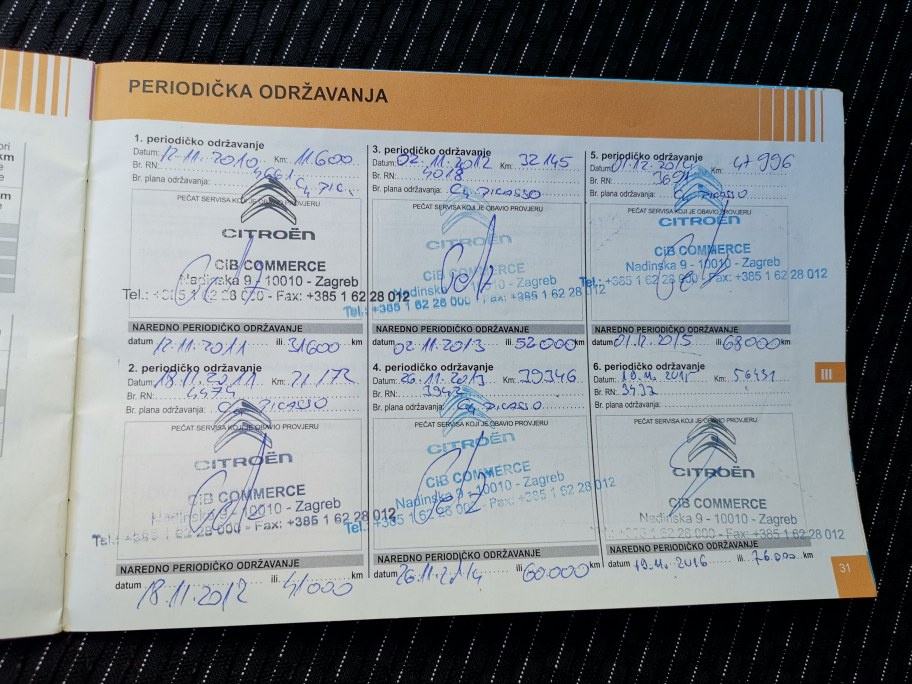 PERIODIČKA ODRŽAVANJA
1. periodičko održavanje
Datum: 12.11.2010 Km: 11600
Br. RN: 4661
Br. plana održavanja: C4 PIC.
PEČAT SERVISA KOJI JE OBAVIO PROVJERU
CITROËN
CiB COMMERCE
Nadinska 9 - 10010 - Zagreb
Tel.: +385 1 62 28 000 - Fax: +385 1 62 28 012
NAREDNO PERIODIČKO ODRŽAVANJE
datum 12.11.2011 ili 31600 km
2. periodičko održavanje
Datum: 18.11.2011 Km: 21.172
Br. RN: 4474
Br. plana održavanja: C4 PICASSO
PEČAT SERVISA KOJI JE OBAVIO PROVJERU
CITROËN
CiB COMMERCE
Nadinska 9 - 10010 - Zagreb
Tel.: +385 1 62 28 000 - Fax: +385 1 62 28 012
NAREDNO PERIODIČKO ODRŽAVANJE
datum 18.11.2012 ili 41000 km
3. periodičko održavanje
Datum: 02.11.2012 Km: 32145
Br. RN: 4018
Br. plana održavanja: C4 PICASSO
PEČAT SERVISA KOJI JE OBAVIO PROVJERU
CITROËN
CiB COMMERCE
Nadinska 9 - 10010 - Zagreb
Tel.: +385 1 62 28 000 - Fax: +385 1 62 28 012
NAREDNO PERIODIČKO ODRŽAVANJE
datum 02.11.2013 ili 52000 km
4. periodičko održavanje
Datum: 26.11.2013 Km: 39346
Br. RN:
Br. plana održavanja: C4 PICASSO
PEČAT SERVISA KOJI JE OBAVIO PROVJERU
CITROËN
CiB COMMERCE
Nadinska 9 - 10010 - Zagreb
Tel.: +385 1 62 28 000 - Fax: +385 1 62 28 012
NAREDNO PERIODIČKO ODRŽAVANJE
datum 26.11.2014 ili 60000 km
5. periodičko održavanje
Datum: 01.12.2014 Km: 47996
Br. RN:
Br. plana održavanja: C4 PICASSO
PEČAT SERVISA KOJI JE OBAVIO PROVJERU
CITROËN
CiB COMMERCE
Nadinska 9 - 10010 - Zagreb
Tel.: +385 1 62 28 000 - Fax: +385 1 62 28 012
NAREDNO PERIODIČKO ODRŽAVANJE
datum 01.12.2015 ili 68000 km
6. periodičko održavanje
Datum: 19.11.2015 Km: 56431
Br. RN: 3432
Br. plana održavanja:
PEČAT SERVISA KOJI JE OBAVIO PROVJERU
CITROËN
CiB COMMERCE
Nadinska 9 - 10010 - Zagreb
Tel.: +385 1 62 28 000 - Fax: +385 1 62 28 012
NAREDNO PERIODIČKO ODRŽAVANJE
datum 19.11.2016 ili 76.000 km
III
31